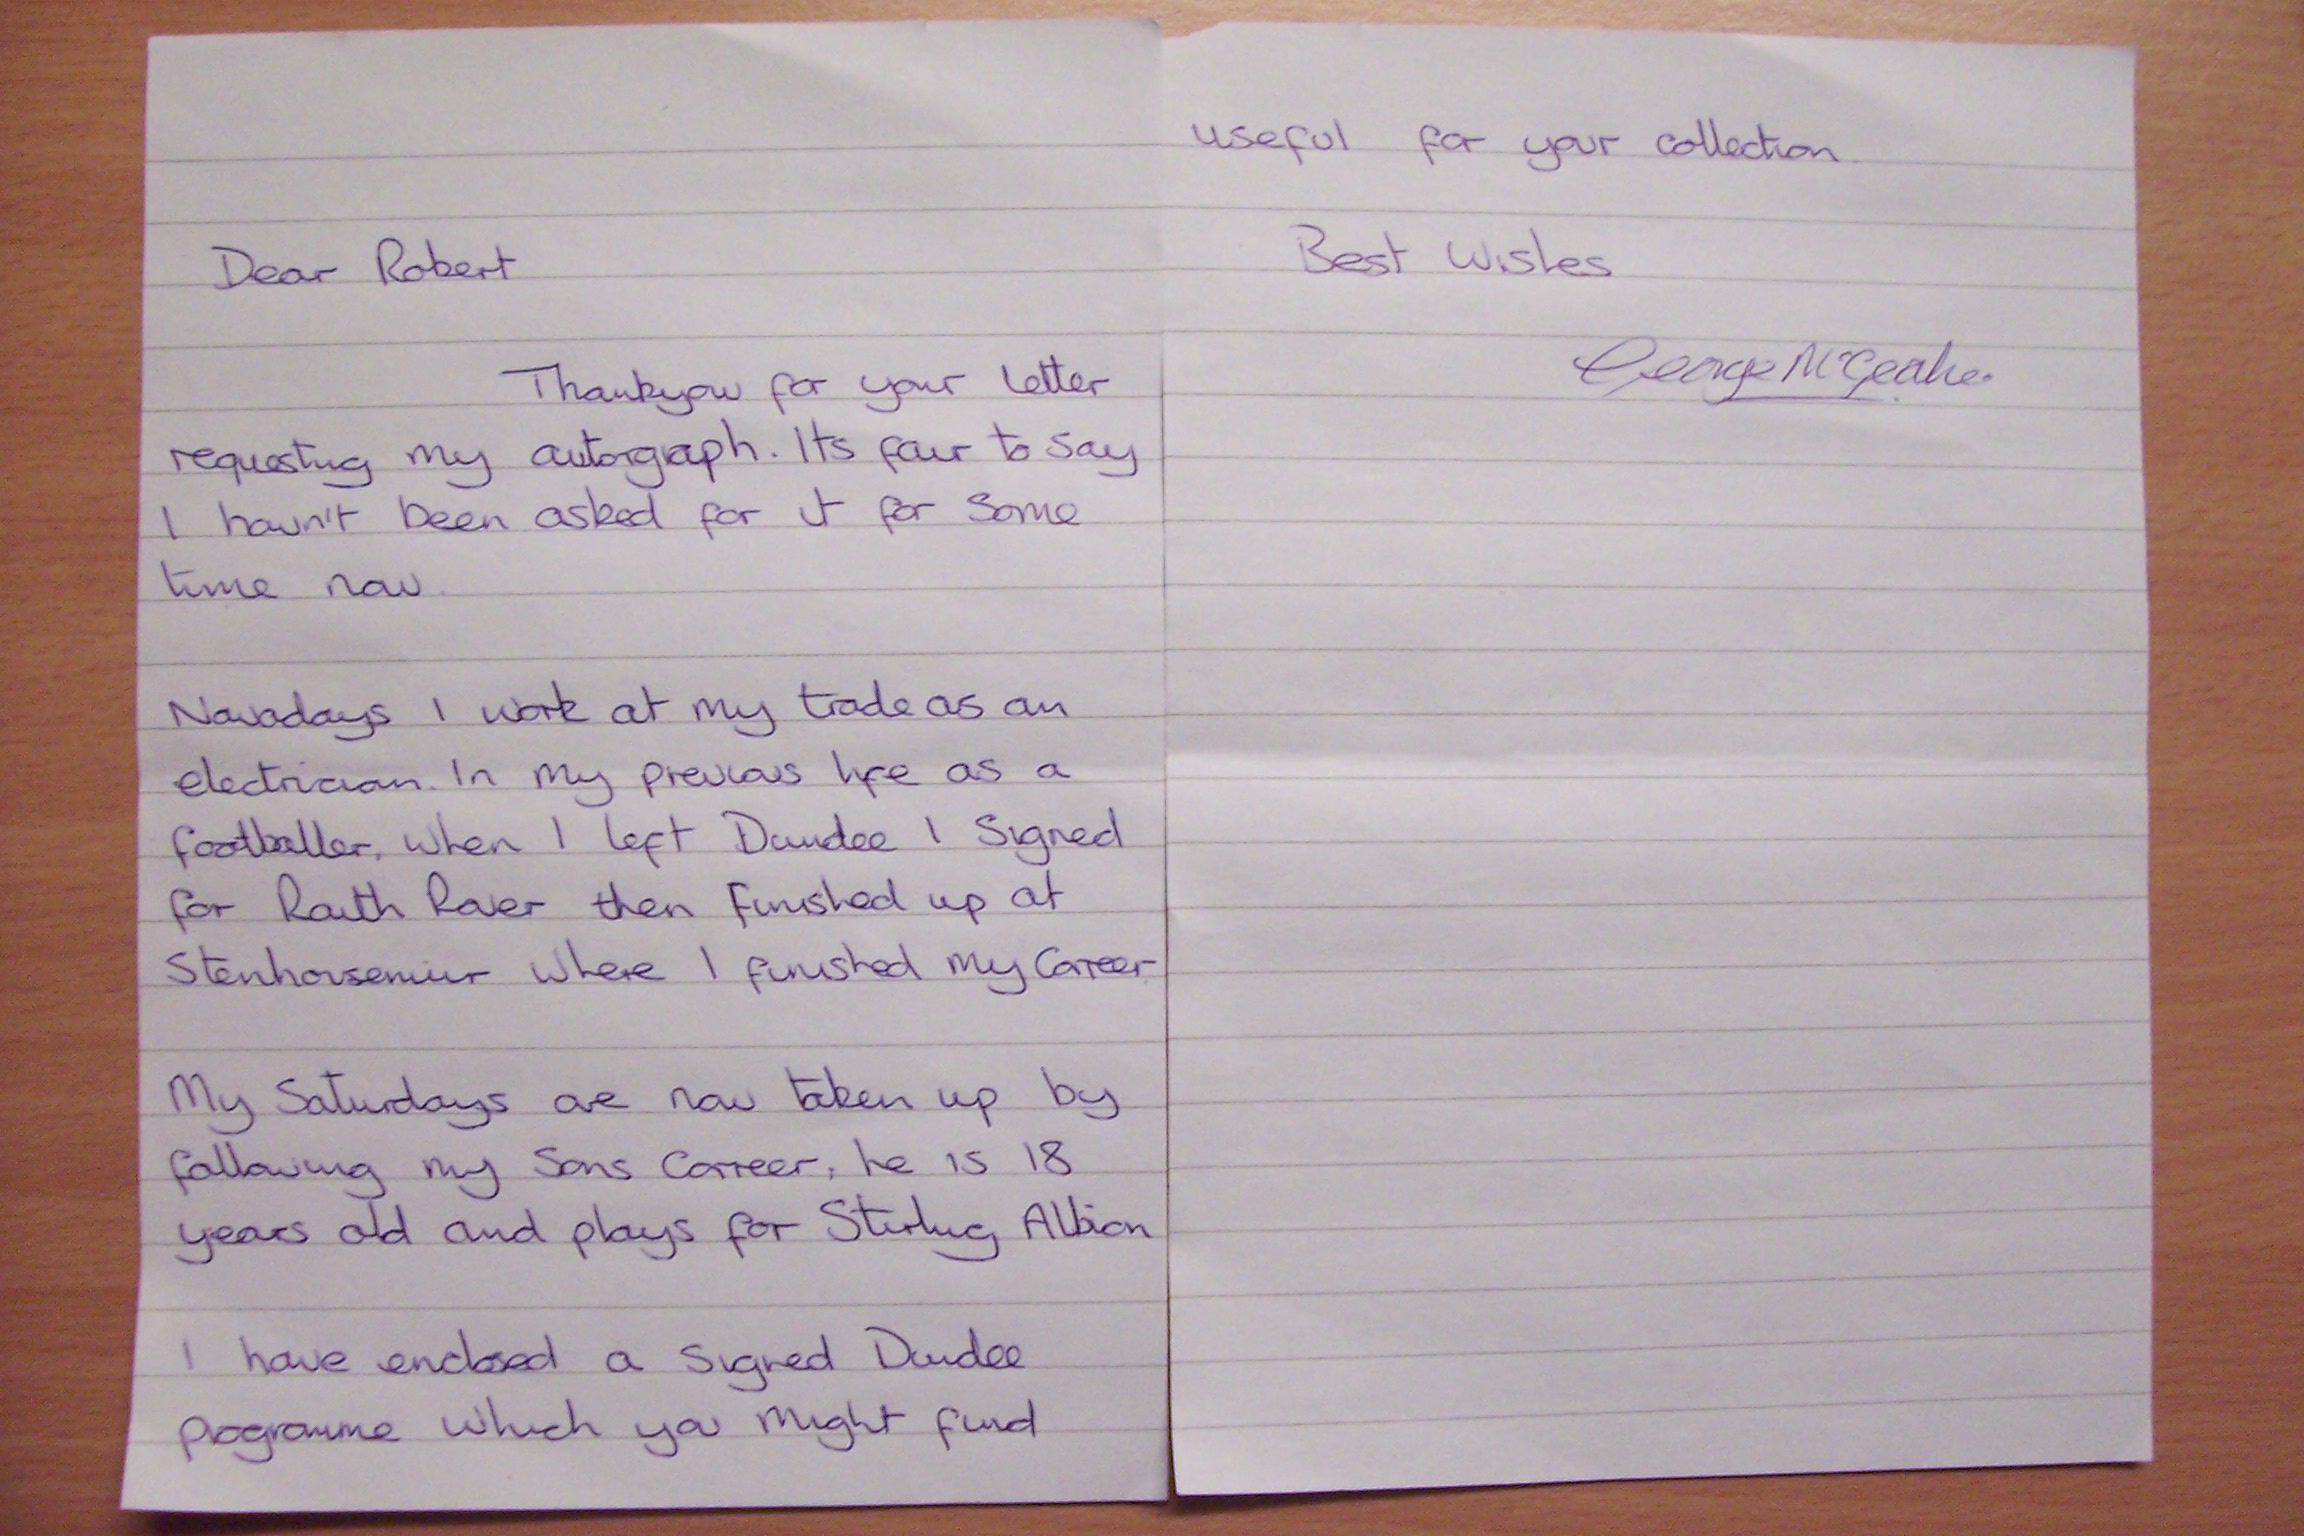 Dear Robert
Thankyou for your letter
requesting my autorgraph. Its fair to say
I havn't been asked for it for some
time now.
Nowadays I work at my trade as an
electrician. In my previous life as a
footballer, when I left Dundee I signed
for Raith Rover then finished up at
Stenhousemuir where I finished my Carreer
My Saturdays are now taken up by
following my Sons Carreer, he is 18
years old and plays for Stirling Albion
I have enclosed a signed Dundee
programme which you might find
useful for your collection
Best Wishes
George McGeachie.